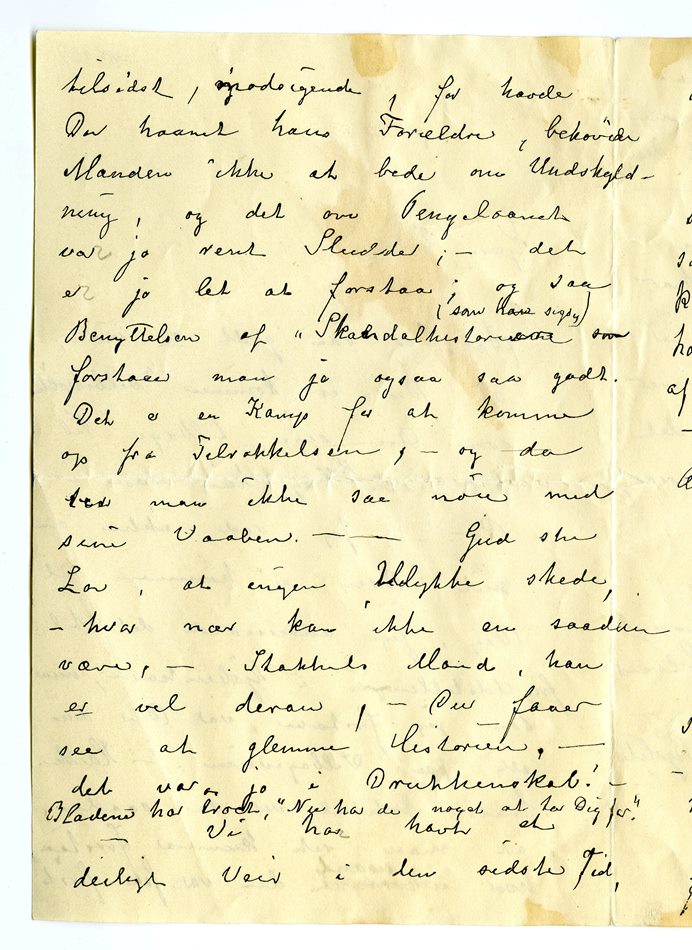 tilsidst, modsigende, for havde
Du haanet hans Forældre, behøvede
Manden ikke at bede om Undskyld-
ning, og det om Pengelaanet
var jo rent Sludder; - det
er jo let at forstaa; og saa
(som han siger)
Benyttelsen af "Skandalhistorierne som
forstaaer man jo ogsaa saa godt.
Det er en Kamp for at komme
op fra Tilrakkelsen, - og da
man ikke saa nøie med
sine Vaaben. - - Gud ske
Lov, at ingen Ulykke skede,
- hvor nær kan ikke en saadan
være, - Stakkels Mand, han
er vel deran, - Du faaer
see at glemme Historien, -
det var jo i Drukkenskab! -
Bladene har troet, "Nu har de noget at ta' Dig for".
- Vi har havt et
deiligt Veir i den sidste Tid,